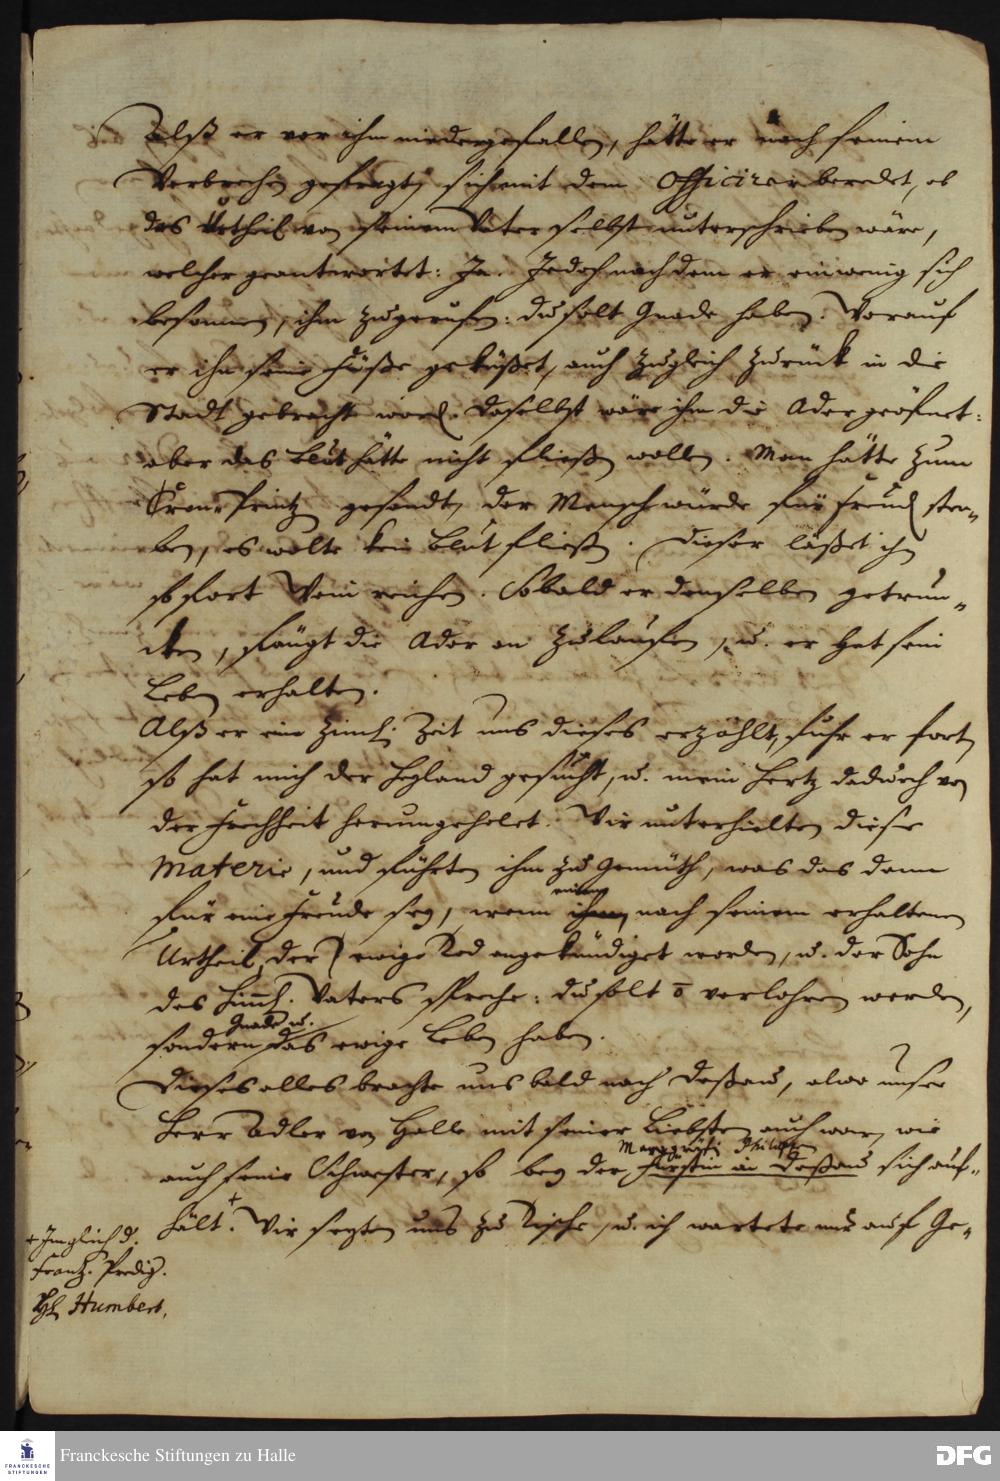 Alß er vor ihm niedergefallen, hätte er nach seinem
Verbrechen gefragt, sich mit dem Officirer beredet, ob
das Urtheil von seinem Vater selbst unterschrieben wäre,
welcher geantwortet: Ja. Jedoch nach dem er ein wenig sich
besonnen, ihm zugerufen: du solt Gnade haben. Worauf
er ihm seine Füße geküßet, auch zugleich zurück in die
Stadt gebracht word. Daselbst wäre ihm die Ader geöfnet:
aber das Blut hätte nicht fließen wollen. Man hätte zum
CronPrintz gesandt, der Mensch würde für Freud ster=
ben, es wolte kein Blut fließen. Dieser läßet ihm
sofort Wein reichen. Sobald er denselben getrun=
cken, fängt die Ader an zu lauffen, u. er hat sein
Leben erhalten.
Alß er eine ziml. Zeit uns dieses erzählt, fuhr er fort,
so hat mich der Heyland gesucht, u. mein Hertz dadurch von
der Frechheit herumgeholet. Wir unterhielten diese
Materie, und führten ihm zu Gemüth, was das denn
für eine Freude sey, wenn einem nach seinem erhaltenen
Urtheil, der ewige Tod angekündiget worden, u. der Sohn
des himml. Vaters spreche: du solt ō verlohren werden,
sondern Gnade u. das ewige Leben haben.
Dieses alles brachte uns bald nach Deßau, alwo unser
Herr Adler von Halle mit seiner Liebsten auch war, wie
Marggräfin Philipp
auch seine Schwester, so bey der Fürstin in Deßau sich auf=
hält.+ Wir setzten uns zu Tische, u. ich wartete nur auf Ge=
+ Imgleich d.
Frantz. Predig.
HE Humbert.
Franckesche Stiftungen zu Halle
FRANCKESCHE
STIFTUNGEN
DFG